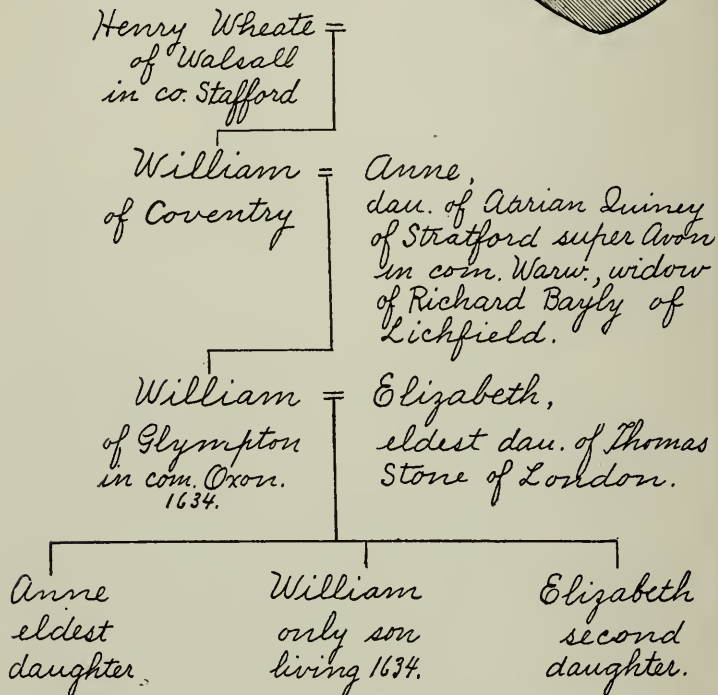 Henry Wheate =
of Walsall
in co. Stafford
William =
of Coventry
Anne,
dau. of Adrian Quiney
of Stratford super Avon
in com. Warw., widow
of Richard Bayly of
Lichfield.
William =
of Glympton
in com. Oxon.
1634.
Elizabeth,
eldest dau. of Thomas
Stone of London.
Anne
eldest
daughter
William
only son
living 1634.
Elizabeth
second
daughter.